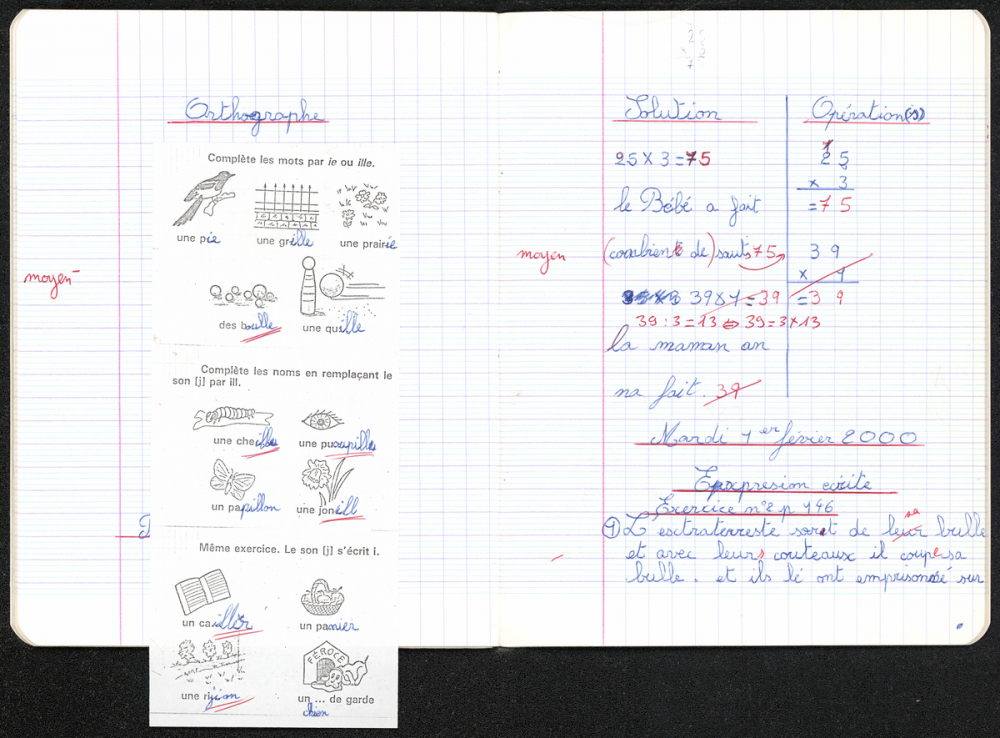 Orthographe
Complète les mots par ie ou ille.
une pie une grille une prairie
moyen
des boulle une quille
Complète les noms en remplaçant le
son [j] par ill.
une cheille une puoupille
un papillon une joneill
Même exercice. Le son [j] s'écrit i.
un caillor un panier
FÉROCE
une rijion un ... de garde
chien
Solution Opération(s)
25 × 3 = 75
1
25
× 3
= 75
le Bébé a fait
moyen
(combient de) sauts 75
39
× 1
= 39
39 × 1 = 39
39 : 3 = 13 ⇔ 39 = 3 × 13
la maman an
na fait. 39
Mardi 1er février 2000
Expression écrite
Exercice n°2 p 146
1 L'esctraterreste soret de leur sa brulle
et avec leurs couteaux il coupe sa
bulle. et ils lé ont emprisonné sur